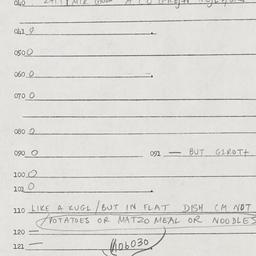 040
041 0
050 0
060 0
070 0
080 0
090 0 091 — BUT
100 0
101 0
110 LIKE A KUGL / BUT IN FLAT DISH CM NOT
POTATOES OR MATZO MEAL OR NOODLES
120 —
121 —